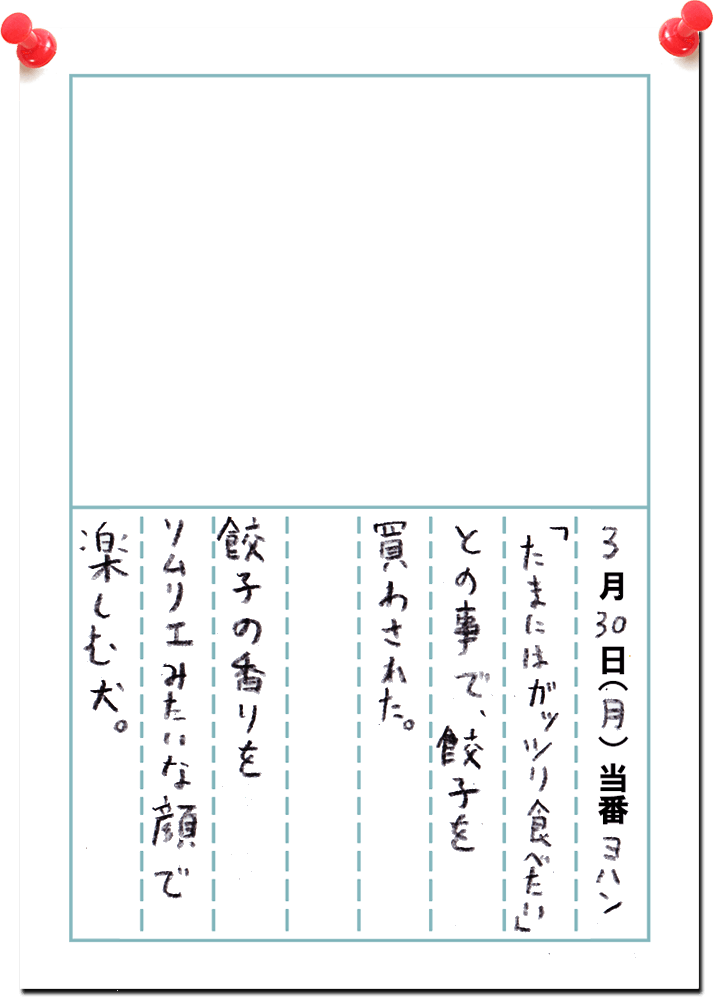 3月30日(月)当番ヨハン
「たまにはガッツリ食べたい」
との事で、餃子を
買わされた。
餃子の香りを
ソムリエみたいな顔で
楽しむ犬。